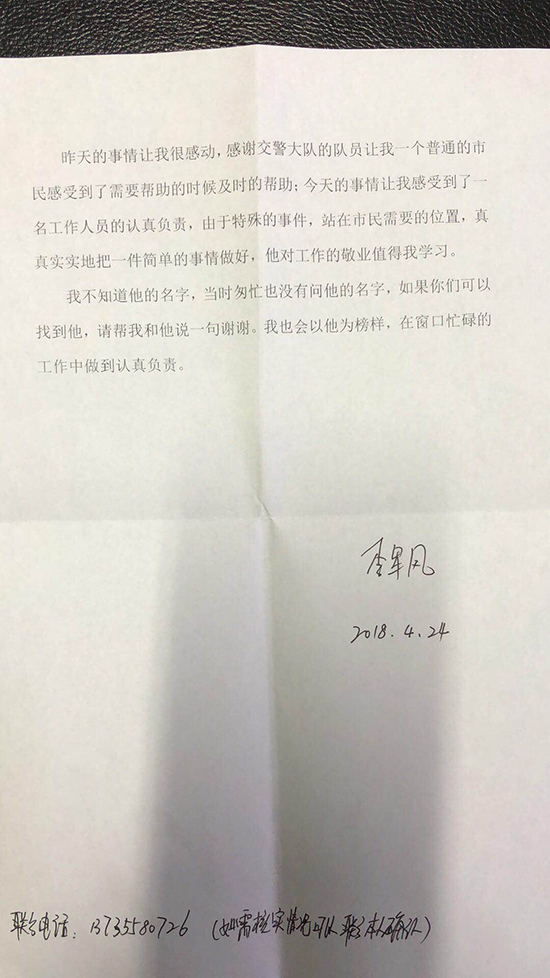 昨天的事情让我很感动，感谢交警大队的队员让我一个普通的市
民感受到了需要帮助的时候及时的帮助；今天的事情让我感受到了一
名工作人员的认真负责，由于特殊的事件，站在市民需要的位置，真
真实实地把一件简单的事情做好，他对工作的敬业值得我学习。
我不知道他的名字，当时匆忙也没有问他的名字，如果你们可以
找到他，请帮我和他说一句谢谢。我也会以他为榜样，在窗口忙碌的
工作中做到认真负责。
李军风
2018.4.24
联系电话：13735580726 （如需核实情况可以联系本人确认）